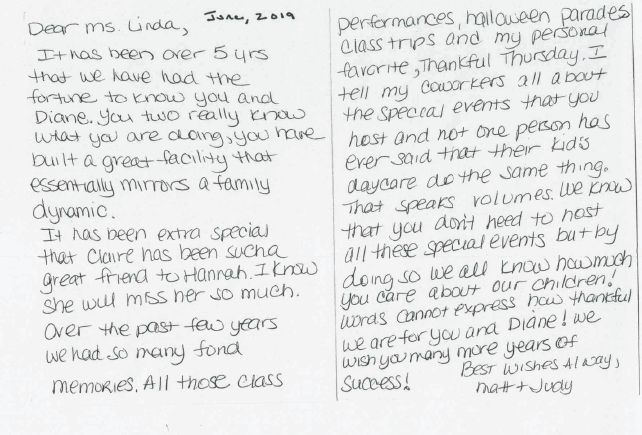 June, 2019
Dear Ms. Linda,
It has been over 5 yrs
that we have had the
fortune to know you and
Diane. You two really know
what you are doing, you have
built a great facility that
essentially mirrors a family
dynamic.
It has been extra special
that Claire has been such a
great friend to Hannah. I know
she will miss her so much.
Over the past few years
we had so many fond
memories. All those class
performances, halloween parades
class trips and my personal
favorite, Thankful Thursday. I
tell my coworkers all about
the special events that you
host and not one person has
ever said that their kid's
daycare do the same thing.
That speaks volumes. We know
that you don't need to host
all these special events but by
doing so we all know how much
you care about our children!
Words cannot express how thankful
we are for you and Diane! We
wish you many more years of
success!
Best Wishes Always,
Matt + Judy